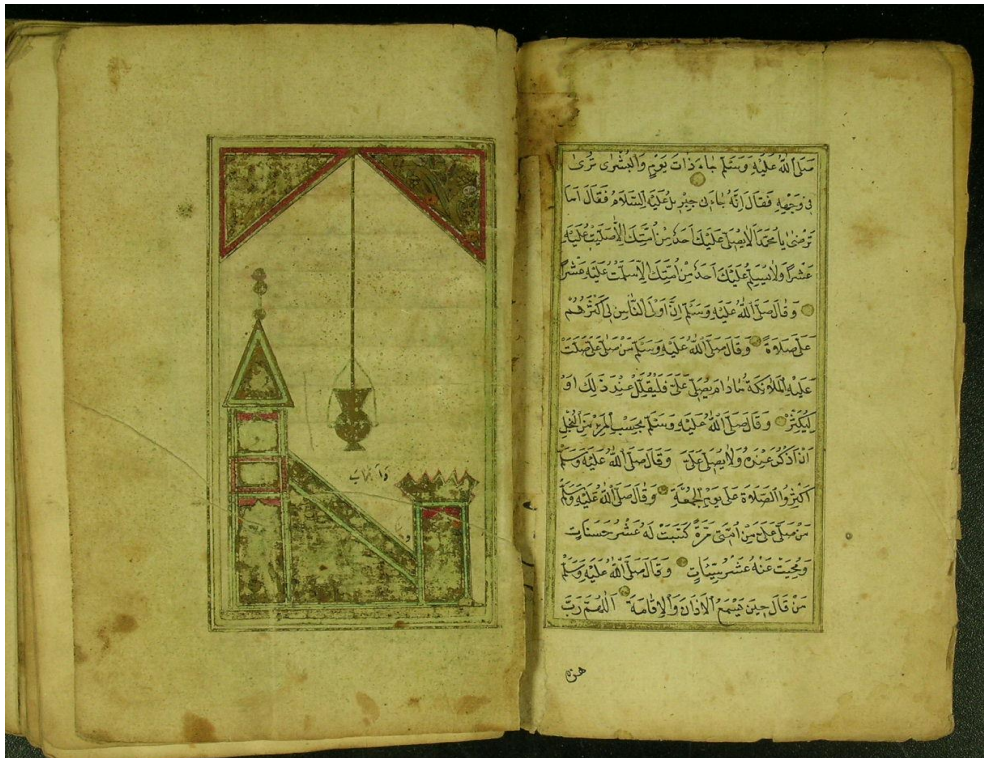 صَلَّى اللهُ عَلَيْهِ وَسَلَّمَ جَاءَ ذَاتَ يَوْمٍ وَالْبُشْرٰى تُرٰى
فِي وَجْهِهِ فَقَالَ اِنَّهُ جَاءَنِي جِبْرِيلُ عَلَيْهِ السَّلَامُ فَقَالَ اَمَا
تَرْضٰى يَا مُحَمَّدُ اَلَّا يُصَلِّيَ عَلَيْكَ اَحَدٌ مِنْ اُمَّتِكَ اِلَّا صَلَّيْتُ عَلَيْهِ
عَشْرًا وَلَا يُسَلِّمُ عَلَيْكَ اَحَدٌ مِنْ اُمَّتِكَ اِلَّا سَلَّمْتُ عَلَيْهِ عَشْرًا
وَقَالَ صَلَّى اللهُ عَلَيْهِ وَسَلَّمَ اِنَّ اَوْلَى النَّاسِ بِي اَكْثَرُهُمْ
عَلَيَّ صَلَاةً وَقَالَ صَلَّى اللهُ عَلَيْهِ وَسَلَّمَ مَنْ صَلَّى عَلَيَّ صَلَّتْ
عَلَيْهِ الْمَلَائِكَةُ مَادَامَ يُصَلِّي عَلَيَّ فَلْيُقَلِّلْ عِنْدَ ذٰلِكَ اَوْ
لِيُكَثِّرْ وَقَالَ صَلَّى اللهُ عَلَيْهِ وَسَلَّمَ بِحَسْبِ الْمَرْءِ مِنَ الْبُخْلِ
اَنْ اُذْكَرَ عِنْدَهُ وَلَا يُصَلِّي عَلَيَّ وَقَالَ صَلَّى اللهُ عَلَيْهِ وَسَلَّمَ
اَكْثِرُوا الصَّلَاةَ عَلَيَّ يَوْمَ الْجُمُعَةِ وَقَالَ صَلَّى اللهُ عَلَيْهِ وَسَلَّمَ
مَنْ صَلَّى عَلَيَّ مِنْ اُمَّتِي مَرَّةً كُتِبَتْ لَهُ عَشْرُ حَسَنَاتٍ
وَمُحِيَتْ عَنْهُ عَشْرُ سَيِّئَاتٍ وَقَالَ صَلَّى اللهُ عَلَيْهِ وَسَلَّمَ
مَنْ قَالَ حِينَ يَسْمَعُ الْاَذَانَ وَالْاِقَامَةَ اَللّٰهُمَّ رَبَّ
هٰذِهِ